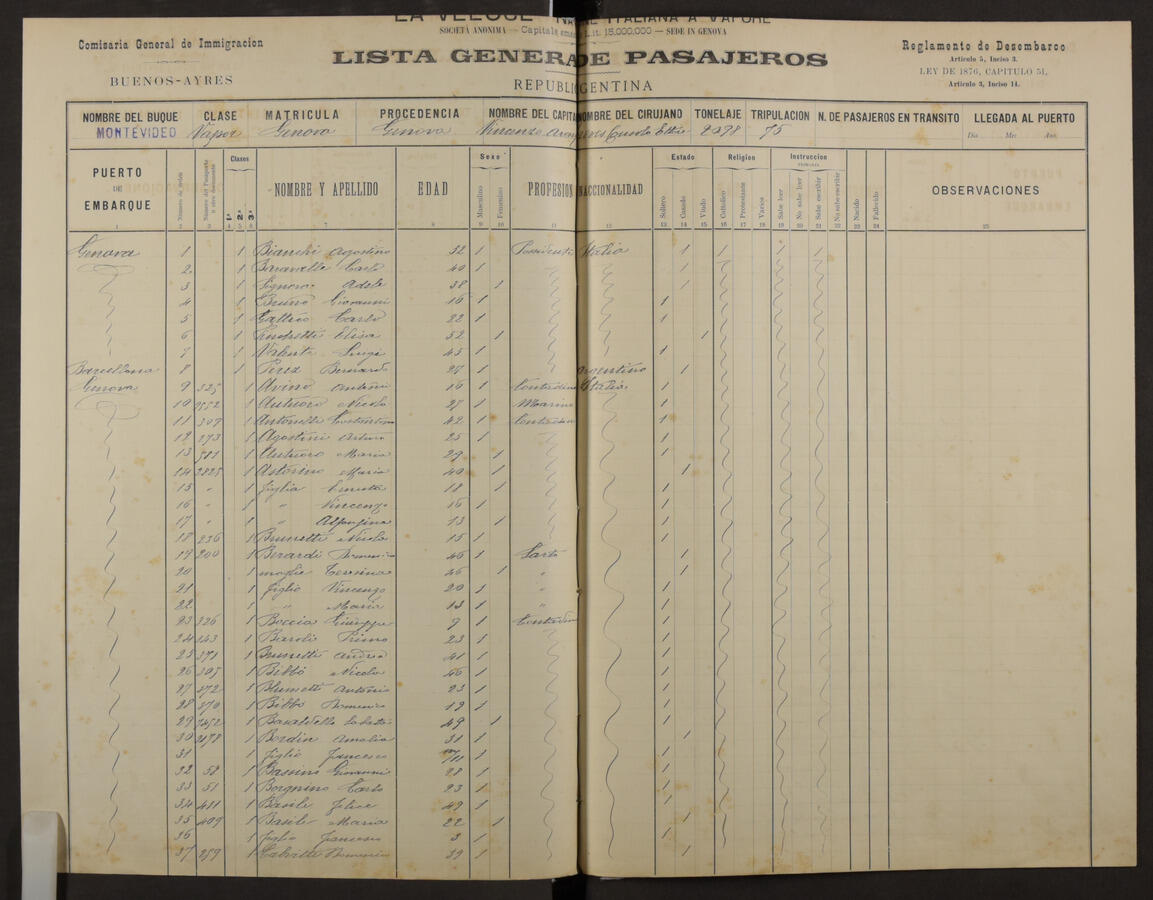 LA VELOCE NA ITALIANA A VAPORE
SOCIETÀ ANONIMA — Capitale em Lit. 15.000.000 — SEDE IN GENOVA
Comisaria General de Immigracion
BUENOS-AYRES
LISTA GENERA DE PASAJEROS
REPUBLI GENTINA
Reglamento de Desembarco
Articulo 5, Inciso 3.
LEY DE 1876, CAPITULO 51,
Articulo 3, Inciso 14.
NOMBRE DEL BUQUE CLASE MATRICULA PROCEDENCIA NOMBRE DEL CAPITA NOMBRE DEL CIRUJANO TONELAJE TRIPULACION N. DE PASAJEROS EN TRANSITO LLEGADA AL PUERTO
MONTEVIDEO Vapor Genova Genova Vincenzo 2298 75 Dia Mes Ano
PUERTO DE EMBARQUE Número de orden Número del Pasaporte Clases 1ª 2ª 3ª NOMBRE Y APELLIDO EDAD Sexo Masculino Femenino PROFESION NACCIONALIDAD Estado Soltero Casado Viudo Religion Cattolico Protestante Varios Instruccion PRIMARIA Sabe leer No sabe leer Sabe escribir No sabe escribir Nacido Fallecido OBSERVACIONES
1 2 3 4 5 6 7 8 9 10 11 12 13 14 15 16 17 18 19 20 21 22 23 24 25
Genova 1 1 Bianchi Agostino 52 1 Possidente Italia 1 1 1 1
2 1 Carlo 40 1 1
3 1 Signora Adele 38 1 1
4 1 Bruno Giovanni 16 1 1
5 1 Gattico Carlo 22 1 1
6 1 Elisa 52 1 1
7 1 Valente Luigi 45 1 1
Barcellona 8 1 Perez Bernardo 27 1 Argentino 1
Genova 9 325 1 Avino Antonio 16 1 Contadino Italia 1
10 9552 1 Autuoro Nicola 27 1 Marino 1
11 309 1 Antonelli Costantino 42 1 Contadino 1
12 273 1 Agostini Arturo 25 1 1
13 581 1 Autuoro Maria 29 1 1
14 2825 1 Astorino Maria 40 1 1
15 " 1 figlia 18 1 1
16 " 1 " Vincenzo 16 1 1
17 " 1 " Alfonsina 13 1 1
18 236 1 Brunetti Nicola 15 1 1
19 200 1 Berardi Domenico 46 1 Sarto 1
20 1 moglie Teresina 46 1 " 1
21 1 figlio Vincenzo 20 1 " 1
22 1 " Maria 13 1 " 1
23 326 1 Boccia Giuseppe 9 1 Contadino 1
24 243 1 Biaroli Primo 23 1 1
25 371 1 Brunetti Andrea 41 1 1
26 305 1 Bibbò Nicola 46 1 1
27 372 1 Blumetti Antonio 23 1 1
28 370 1 Bibbò Domenico 19 1 1
29 7452 1 Basaldella 49 1 1
30 2178 1 Bordin Amalia 31 1 1
31 1 figlio Francesco 1 1
32 58 1 Bassino Giovanni 28 1 1
33 51 1 Borgnino Carlo 23 1 1
34 411 1 Basile Felice 49 1 1
35 409 1 Basile Maria 22 1 1
36 1 figlio Francesco 3 1 1
37 259 1 Domenico 39 1 1